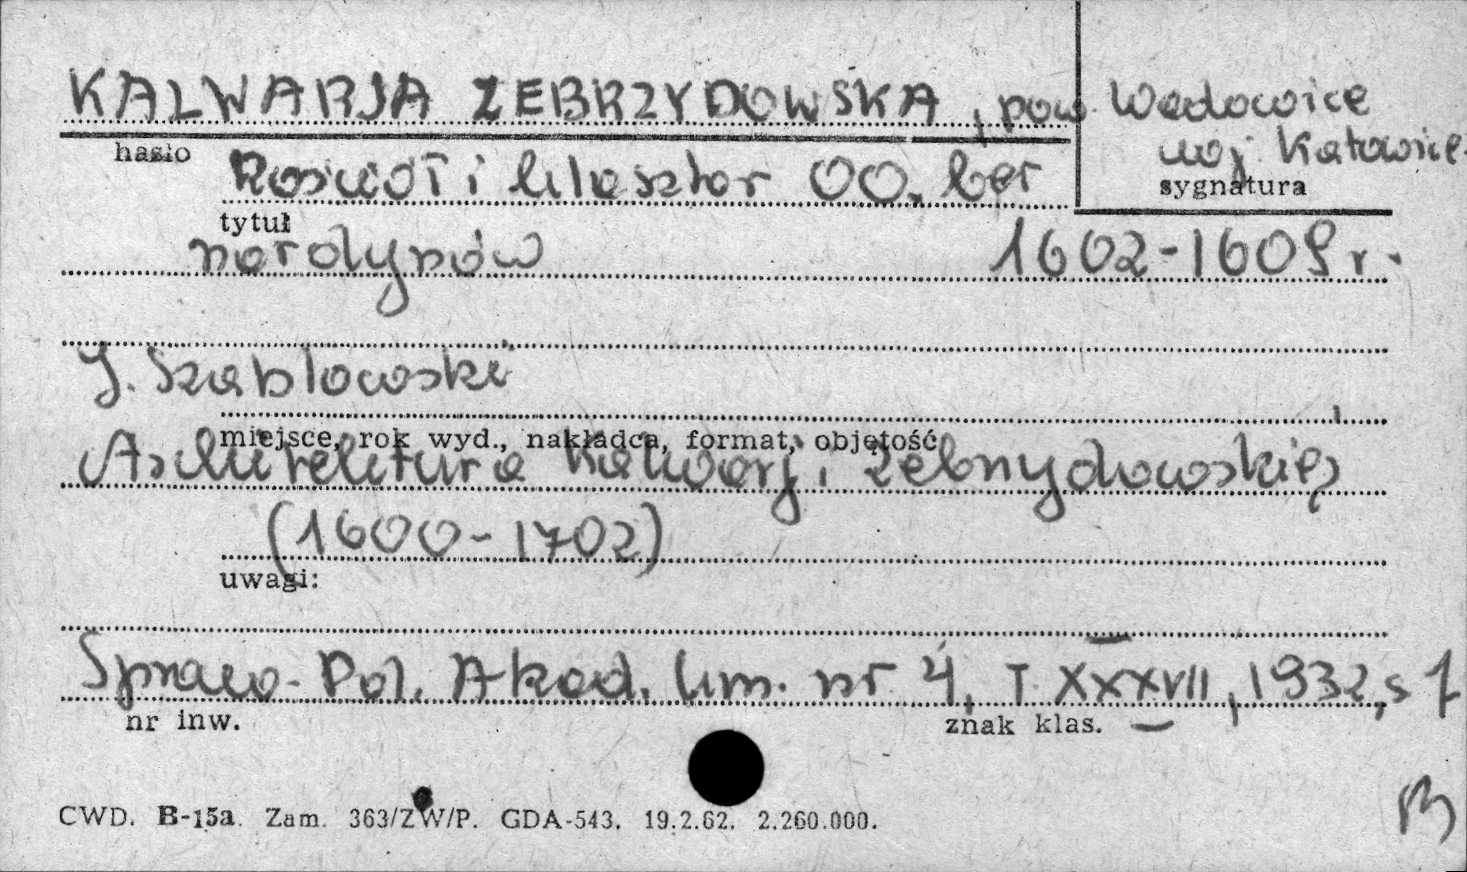 KALWARJA ZEBRZYDOWSKA, pow. Wadowice
woj Katowice
hasło
sygnatura
Kościół i klasztor OO. ber
tytuł
nardynów 1602-1609 r.
J. Szablowski
miejsce, rok wyd., nakładca, format, objętość
Architektura Kalwarji Zebrzydowskiej
(1600-1702)
uwagi:
Spraw. Pol. Akad. Um. nr 4, T. XXXVII, 1932, s 7
nr inw.
znak klas.
CWD. B-15a. Zam. 363/ZW/P. GDA-543. 19.2.62. 2.260.000.